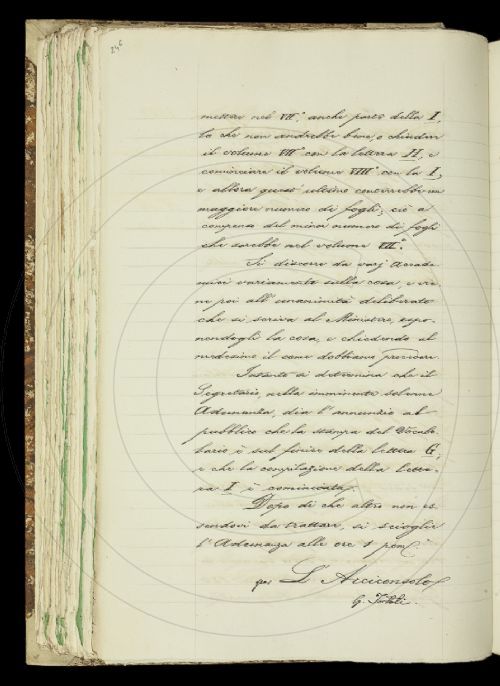 246
mettere nel VII.° anche parte della I,
lo che non andrebbe bene, o chiuder
il volume VII° con la lettera H, e
cominciare il volume VIII° con la I,
e allora quest' ultimo conterrebbe un
maggiore numero di fogli; ciò a
compenso del minor numero di fogli
che sarebbe nel volume VII.°
Si discorre da varj Accade-
mici variamente sulla cosa, e vie-
ne poi all' unanimità deliberato
che si scriva al Ministero, espo-
nendogli la cosa, e chiedendo al
medesimo il come dobbiamo procedere.
Intanto si determina che il
Segretario, nella imminente solenne
Adunanza, dia l' annunzio al
pubblico che la stampa del Vocabo-
lario è sul finire della lettera G;
e che la compilazione della lette-
ra I è cominciata.
Dopo di che altro non es-
sendovi da trattare, si scioglie
l' Adunanza alle ore 1 pom.
L' Arciconsolo